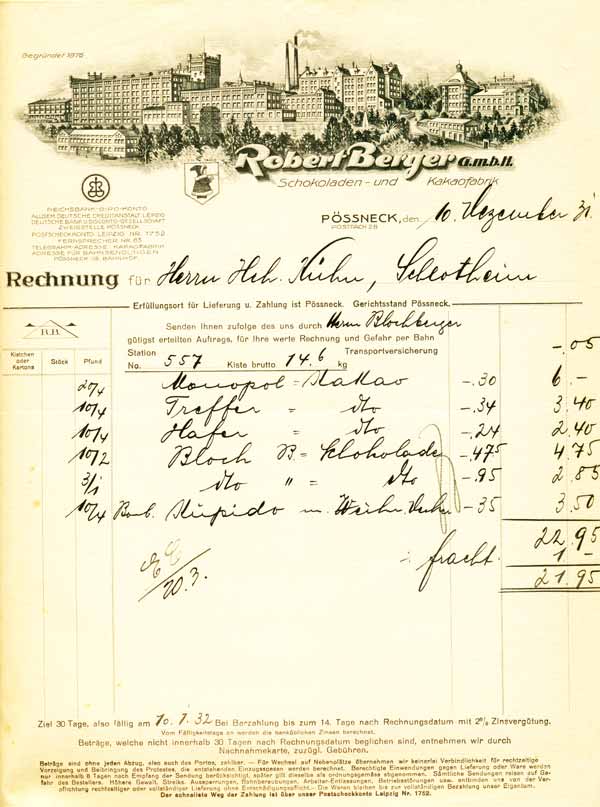 Gegründet 1876
Robert Berger G.m.b.H.
Schokoladen- und Kakaofabrik
REICHSBANK-GIRO-KONTO
ALLGEM. DEUTSCHE CREDITANSTALT LEIPZIG
DEUTSCHE BANK U. DISCONTO-GESELLSCHAFT
ZWEIGSTELLE PÖSSNECK
POSTSCHECKKONTO LEIPZIG NR. 1752
FERNSPRECHER NR. 83
TELEGRAMM-ADRESSE: KAKAOFABRIK
ADRESSE FÜR BAHNSENDUNGEN
PÖSSNECK OB. BAHNHOF
PÖSSNECK, den 10. Dezember 31
POSTFACH 28
Rechnung für Herrn Hch. Kühn, Schlotheim
Erfüllungsort für Lieferung u. Zahlung ist Pössneck. Gerichtsstand Pössneck.
R.B.
Senden Ihnen zufolge des uns durch Herrn Blochberger
gütigst erteilten Auftrags, für Ihre werte Rechnung und Gefahr per Bahn
Station Transportversicherung -.05
No. 557 Kiste brutto 14.6 kg
Kistchen oder Kartons Stück Pfund
20/4 Monopol = Kakao -.30 6.-
10/4 Treffer = dto -.34 3.40
10/4 Hafer = dto -.24 2.40
10/2 Bloch B = Schokolade -.475 4.75
3/1 dto " = dto -.95 2.85
10/4 Bonb. Kupido m. -.35 3.50
22.95
:. fracht. 1.-
21.95
20.3.
Ziel 30 Tage, also fällig am 10.1.32 Bei Barzahlung bis zum 14. Tage nach Rechnungsdatum mit 2% Zinsvergütung.
Vom Fälligkeitstage an werden die banküblichen Zinsen berechnet.
Beträge, welche nicht innerhalb 30 Tagen nach Rechnungsdatum beglichen sind, entnehmen wir durch
Nachnahmekarte, zuzügl. Gebühren.
Beträge sind ohne jeden Abzug, also auch des Portos, zahlbar. – Für Wechsel auf Nebenplätze übernehmen wir keinerlei Verbindlichkeit für rechtzeitige
Vorzeigung und Beibringung des Protestes, die entstehenden Einzugsspesen werden berechnet. Berechtigte Einwendungen gegen Lieferung oder Ware werden
nur innerhalb 8 Tagen nach Empfang der Sendung berücksichtigt, später gilt dieselbe als ordnungsgemäss abgenommen. Sämtliche Sendungen reisen auf Ge-
fahr des Bestellers. Höhere Gewalt, Streiks, Aussperrungen, Bahnsperrungen, Arbeiter-Entlassungen, Betriebsstörungen usw. entbinden uns von der Ver-
pflichtung rechtzeitiger oder vollständiger Lieferung ohne Entschädigungspflicht. – Die Waren bleiben bis zur vollständigen Bezahlung unser Eigentum.
Der schnellste Weg der Zahlung ist über unser Postscheckkonto Leipzig Nr. 1752.